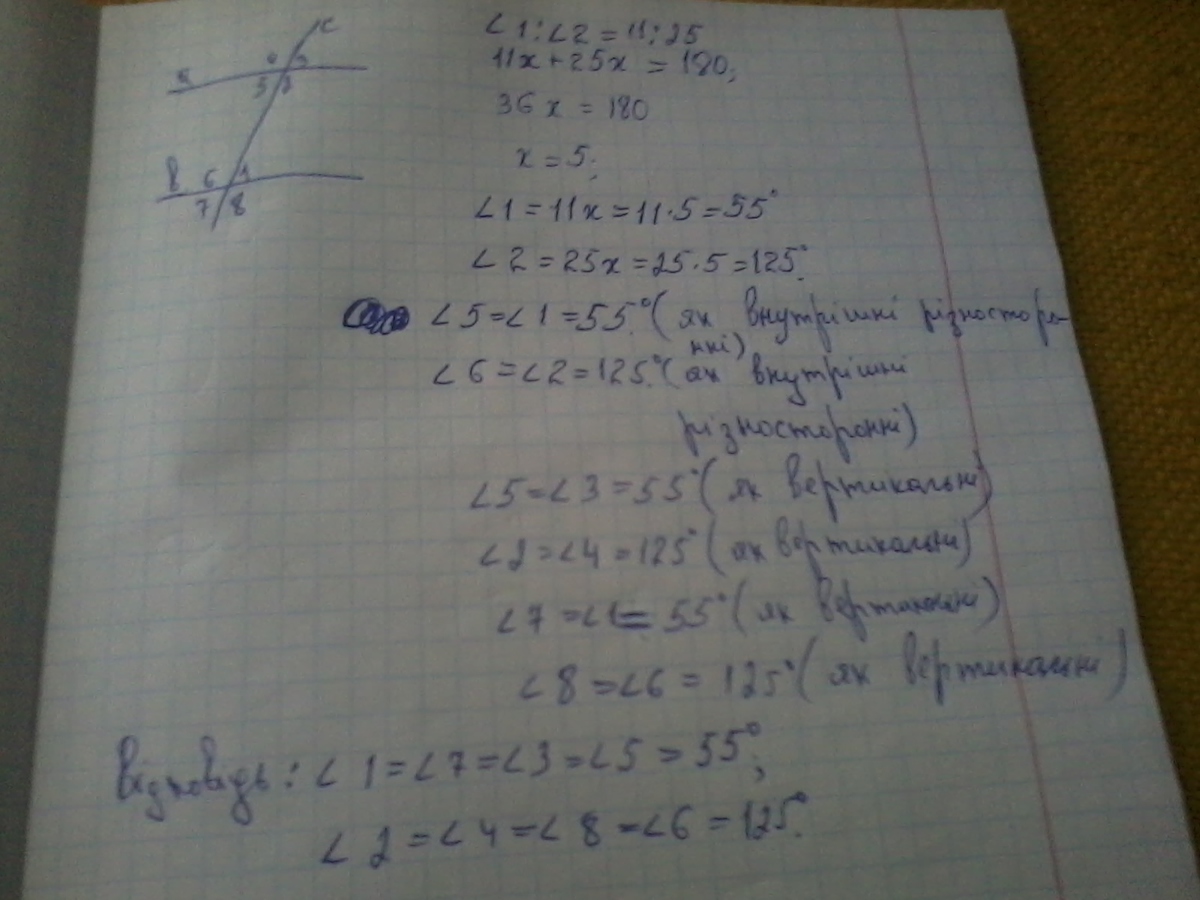 c
a
4 3
5 2
b 6 1
7 8
∠1:∠2 = 11:25
11x+25x = 180;
36x = 180
x = 5;
∠1 = 11x = 11·5 = 55°
∠2 = 25x = 25·5 = 125°.
∠5 = ∠1 = 55°. (як внутрішні різносторо-
нні)
∠6 = ∠2 = 125°. (як внутрішні
різносторонні)
∠5 = ∠3 = 55° (як вертикальні)
∠2 = ∠4 = 125° (як вертикальні)
∠7 = ∠1 = 55° (як вертикальні)
∠8 = ∠6 = 125° (як вертикальні)
Відповідь: ∠1 = ∠7 = ∠3 = ∠5 = 55°;
∠2 = ∠4 = ∠8 = ∠6 = 125°.